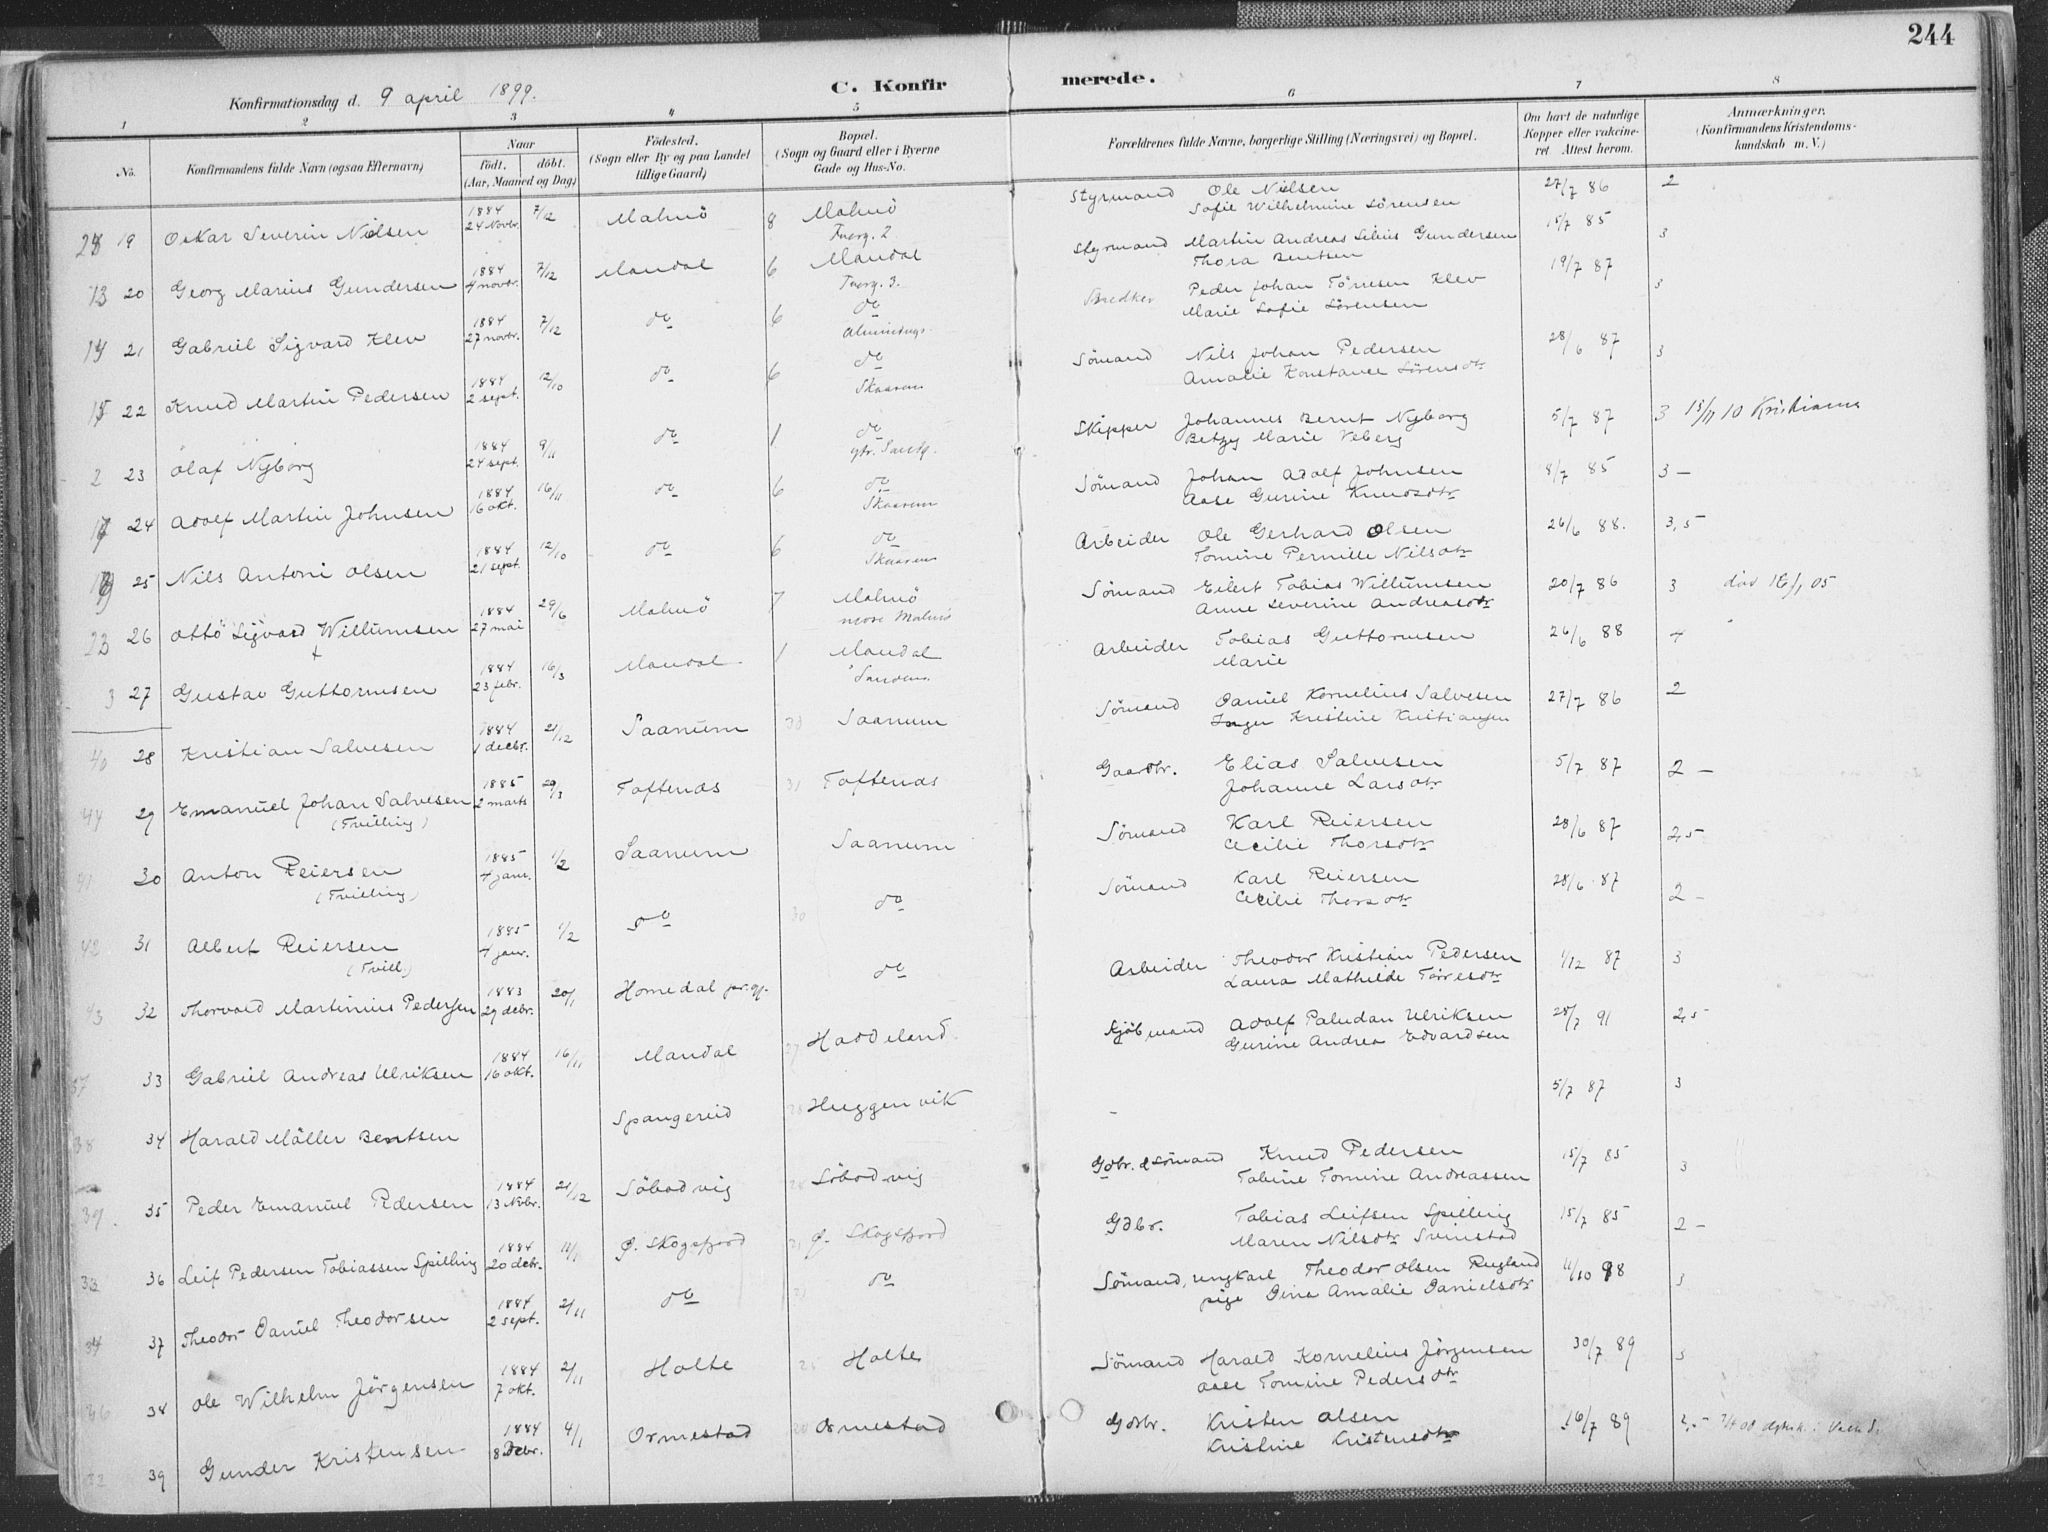 244
Konfirmationsdag d. 9 april 1899.
C. Konfirmerede.
1 2 3 4 5 6 7 8
No.
Konfirmandens fulde Navn (ogsaa Efternavn)
Naar
födt. döbt.
(Aar, Maaned og Dag)
Födested.
(Sogn eller By og paa Landet
tillige Gaard)
Bopæl.
(Sogn og Gaard eller i Byerne
Gade og Hus-No.
Forældrenes fulde Navne, borgerlige Stilling (Næringsvei) og Bopæl.
Om havt de naturlige
Kopper eller vakcine-
ret. Attest herom.
Anmærkninger.
(Konfirmandens Kristendoms-
kundskab m. V.)
19 Oskar Severin Nielsen 1884 24 Novbr. 7/12 Malmö 8 Malmö Tverg. 2 Styrmand Ole Nielsen 27/7 86 2
Sofie Wilhelmine Sørensen
13 20 Georg Marius Gundersen 1884 4 novbr. 7/12 Mandal 6 Mandal Tverg. 3. Styrmand Martin Andreas Gundersen 15/7 85 3
Thora Bentsen
14 21 Gabriel Sigvard Klev 1884 27 novbr. 7/12 do 6 do Peder Johan Tönnesen Klev 19/7 87 3
Marie Sofie Sörensen
15 22 Knud Martin Pedersen 1884 2 sept. 12/10 do 6 do Skaaren Sømand Nils Johan Pedersen 28/6 87 3
Amalie Konstance Sörensdtr
2 23 Olaf Nyborg 1884 24 sept. 9/11 do 1 do Skipper Johannes Bernt Nyborg 5/7 87 3
Betzy Marie Veberg
24 Adolf Martin Johnsen 1884 16 okt. 16/11 do 6 do Skaaren Sömand Johan Adolf Johnsen 8/7 85 3 –
Aase Gurine Knudsdtr
25 Nils Antoni Olsen 1884 21 sept. 12/10 do 6 do Skaaren Arbeider Ole Gerhard Olsen 26/6 88. 3,5
Tomine Pernille Nilsdtr
26 Otto Sigvard Willumsen 1884 27 mai 29/6 Malmö 7 Malmö Sömand Eilert Tobias Willumsen 20/7 86 3 död 16/1 05
Anne Severine Andreasdtr
3 27 Gustav Guttormsen 1884 23 febr. 16/3 Mandal 1 Mandal Arbeider Tobias Guttormsen 26/6 88 4
Marie
40 28 Kristian Salvesen 1884 1 decbr. 21/12 Saanum Saanum Sömand Daniel Kornelius Salvesen 27/7 86 2
Inger Kristine Kristiansen
44 29 Emanuel Johan Salvesen 1885 2 marts 29/3 Toftenæs 31 Toftenæs Gaardbr. Elias Salvesen 5/7 87 2 –
(Tvilling) Johanne Larsdtr
41 30 Anton Reiersen 1885 4 janr. 1/2 Saanum Saanum Sömand Karl Reiersen 28/6 87 2,5
(Tvilling) Cecilie Thorsdtr
42 31 Albert Reiersen 1885 4 janr. 1/2 do 30 do Sömand Karl Reiersen 28/6 87 2 –
(Tvill) Cecilie Thorsdtr
43 32 Thorvald Martinius Pedersen 1883 29 decbr. 20/1 Homedal do Arbeider Theodor Kristian Pedersen 1/12 87 3
Laura Mathilde Torresdtr
37 33 Gabriel Andreas Ulriksen 1884 16 okt. 16/11 Mandal 27 Haddeland Kjöbmand Adolf Paludan Ulriksen 28/7 91 2,5
Gurine Andrea Edvardsen
38 34 Harald Möller Bentsen Spangereid 28 Huggenvik 5/7 87 3
39. 35 Peder Emanuel Pedersen 1884 13 Nvbr. 21/12 Söbodvig Söbodvig Gdbr. & Sömand Knud Pedersen 15/7 85 3
Tobine Tomine Andreassen
36 Leif Pedersen Tobiassen Spilling 1884 20 decbr. Ø. Skogsfjord Ø. Skogsfjord Gdbr. Tobias Leifsen Spilling 15/7 85 2 –
Maren Nilsdtr Svinstad
34 37 Theodor Daniel Theodorsen 1884 2 sept. 2/11 do do Sömand, ungkarl Theodor Olsen Rugland 11/10 98 3
pige Dina Amalie Danielsdtr
38 Ole Wilhelm Jörgensen 1884 7 okt. 2/11 Holte Holte Sömand Harald Kornelius Jörgensen 30/7 89 3
Aase Tomine Pedersdtr
39 Gunder Kristensen 1884 8 Decbr. 4/1 Ormestad Ormestad Gdbr. Kristen Olsen 16/7 89
Kristine Kristensdtr